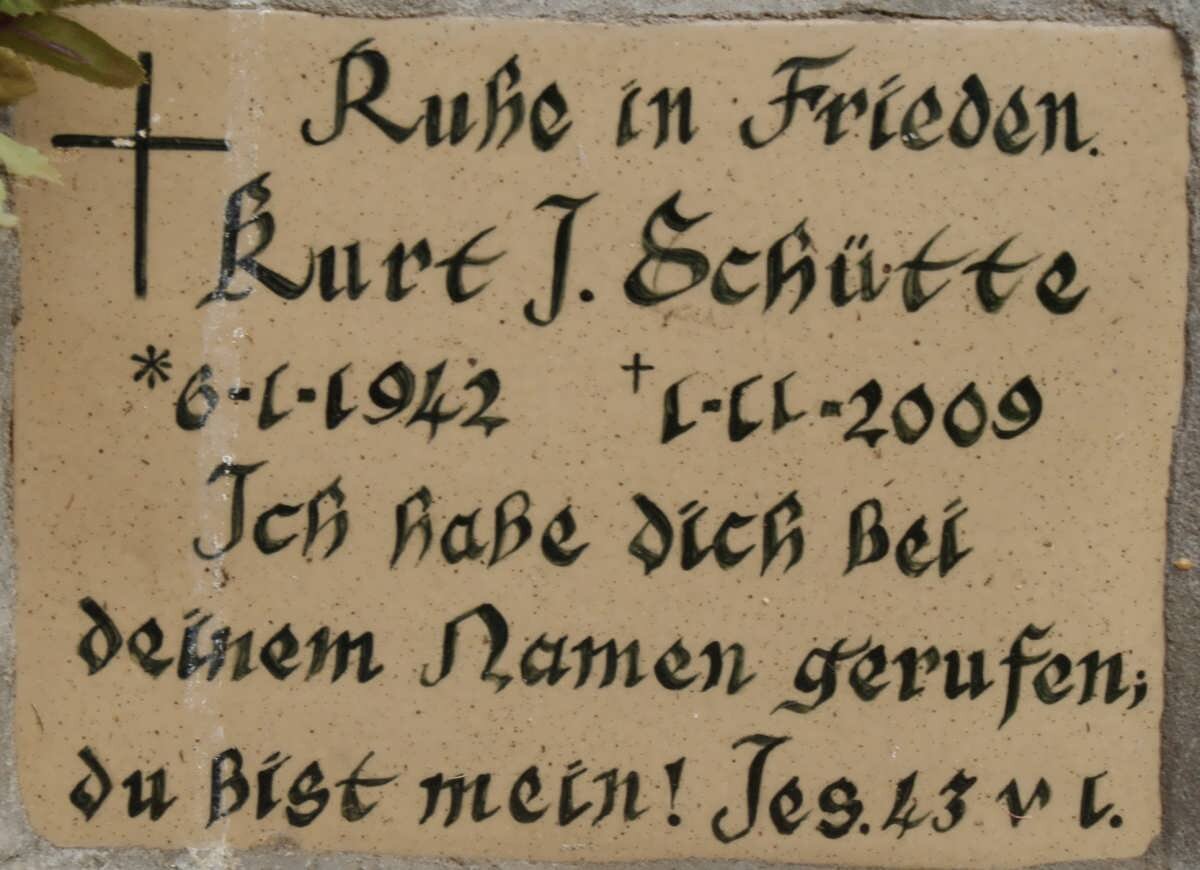 Ruhe in Frieden.
Kurt J. Schütte
*6-1-1942 †1-11-2009
Ich habe dich bei
deinem Namen gerufen;
du bist mein! Jes. 43 v 1.